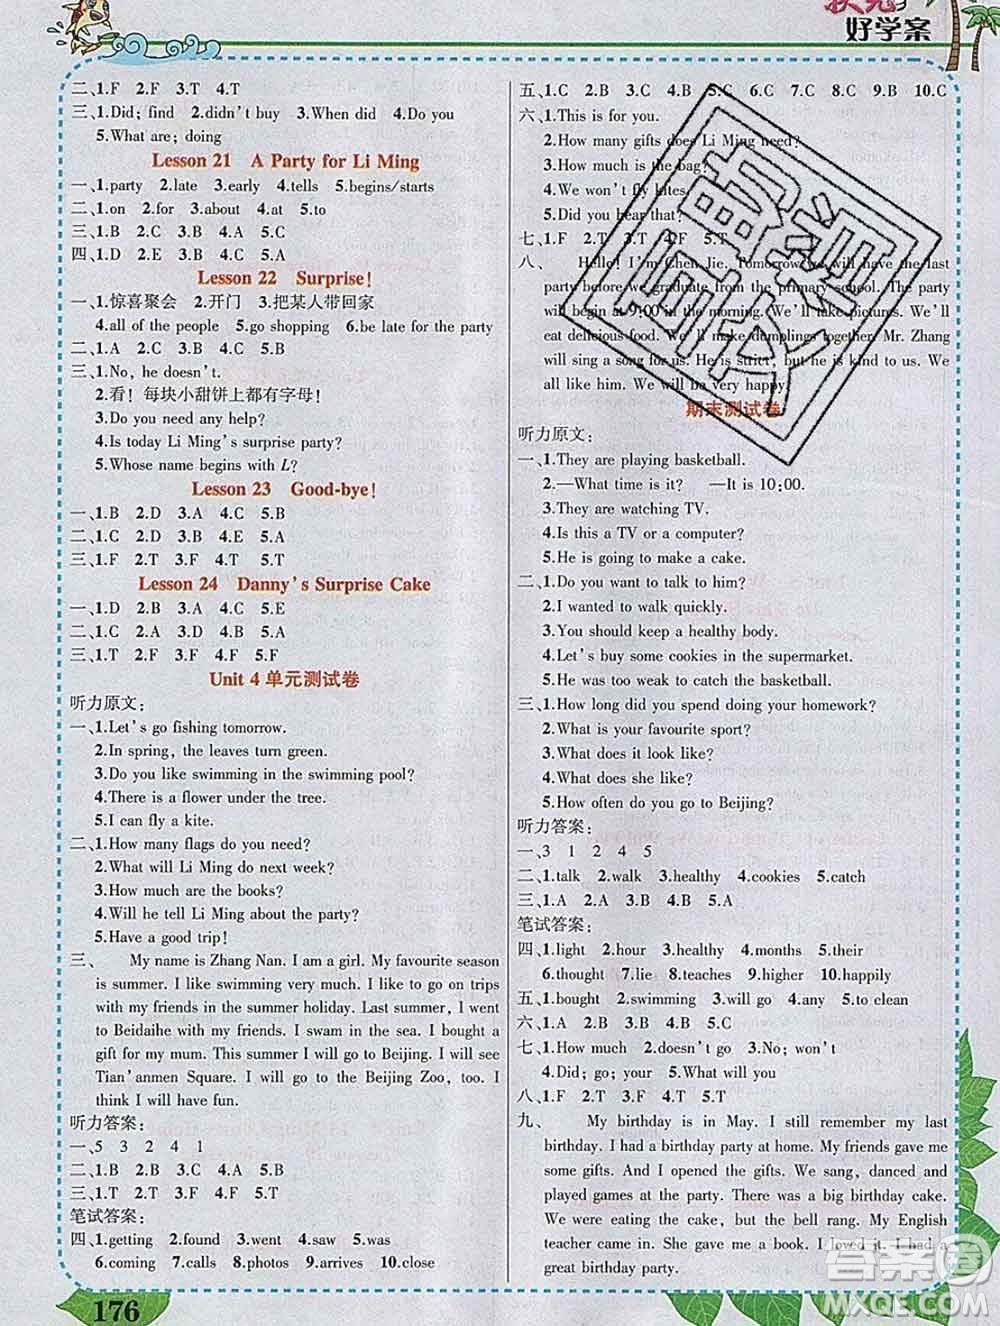 状元
好学案
二、1.F 2.F 3.T 4.T
三、1.Did; find 2.didn't buy 3.When did 4.Do you
5.What are; doing
Lesson 21 A Party for Li Ming
一、1.party 2.late 3.early 4.tells 5.begins/starts
二、1.on 2.for 3.about 4.at 5.to
三、1.B 2.C 3.B 4.A 5.C
四、1.D 2.E 3.B 4.C 5.A
Lesson 22 Surprise!
一、1.惊喜聚会 2.开门 3.把某人带回家
4.all of the people 5.go shopping 6.be late for the party
二、1.A 2.C 3.B 4.A 5.B
三、1.No, he doesn't.
2.看！每块小甜饼上都有字母！
3.Do you need any help?
4.Is today Li Ming's surprise party?
5.Whose name begins with L?
Lesson 23 Good-bye!
一、1.B 2.D 3.A 4.C 5.B
二、1.C 2.D 3.B 4.E 5.A
三、1.F 2.T 3.F 4.F 5.T
Lesson 24 Danny's Surprise Cake
一、1.D 2.B 3.A 4.C 5.E
二、1.C 2.A 3.D 4.B 5.A
三、1.T 2.F 3.F 4.F 5.F
Unit 4 单元测试卷
听力原文:
一、1.Let's go fishing tomorrow.
2.In spring, the leaves turn green.
3.Do you like swimming in the swimming pool?
4.There is a flower under the tree.
5.I can fly a kite.
二、1.How many flags do you need?
2.What will Li Ming do next week?
3.How much are the books?
4.Will he tell Li Ming about the party?
5.Have a good trip!
三、 My name is Zhang Nan. I am a girl. My favourite season
is summer. I like swimming very much. I like to go on trips
with my friends in the summer holiday. Last summer, I went
to Beidaihe with my friends. I swam in the sea. I bought a
gift for my mum. This summer I will go to Beijing. I will see
Tian'anmen Square. I will go to the Beijing Zoo, too. I
think I will have fun.
听力答案:
一、5 3 2 4 1
二、1.B 2.B 3.C 4.A 5.B
三、1.T 2.T 3.F 4.T 5.T
笔试答案:
四、1.getting 2.found 3.went 4.saw 5.was
6.coming 7.calls 8.photos 9.arrives 10.close
176
五、1.C 2.B 3.C 4.A 5.B 6.C 7.A 8.B 9.B 10.C
六、1.This is for you.
2.How many gifts does Li Ming need?
3.How much is the bag?
4.We won't fly kites.
5.Did you hear that?
七、1.F 2.T 3.F 4.F 5.T
八、 Hello! I'm Chen Jie. Tomorrow we will have the last
party before we graduate from the primary school. The party
will begin at 9:00 in the morning. We'll take pictures. We'll
eat delicious food. We'll make dumplings together. Mr. Zhang
will sing a song for us. He is strict, but he is kind to us. We
all like him. We will be very happy.
期末测试卷
听力原文:
一、1.They are playing basketball.
2.—What time is it? —It is 10:00.
3.They are watching TV.
4.Is this a TV or a computer?
5.He is going to make a cake.
二、1.Do you want to talk to him?
2.I wanted to walk quickly.
3.You should keep a healthy body.
4.Let's buy some cookies in the supermarket.
5.He was too weak to catch the basketball.
三、1.How long did you spend doing your homework?
2.What is your favourite sport?
3.What does it look like?
4.What does she like?
5.How often do you go to Beijing?
听力答案:
一、3 1 2 4 5
二、1.talk 2.walk 3.healthy 4.cookies 5.catch
三、1.A 2.C 3.B 4.B 5.A
笔试答案:
四、1.light 2.hour 3.healthy 4.months 5.their
6.thought 7.lie 8.teaches 9.higher 10.happily
五、1.bought 2.swimming 3.will go 4.any 5.to clean
六、1.A 2.B 3.A 4.B 5.C
七、1.How much 2.doesn't go 3.No; won't
4.Did; go; your 5.What will you
八、1.F 2.T 3.F 4.T 5.T
九、 My birthday is in May. I still remember my last
birthday. I had a birthday party at home. My friends gave me
some gifts. And I opened the gifts. We sang, danced and
played games at the party. There was a big birthday cake.
We were eating the cake, but the bell rang. My English
teacher came in. She gave me a book. I loved it. I had a
great birthday party.
答案圈
MXQE.COM